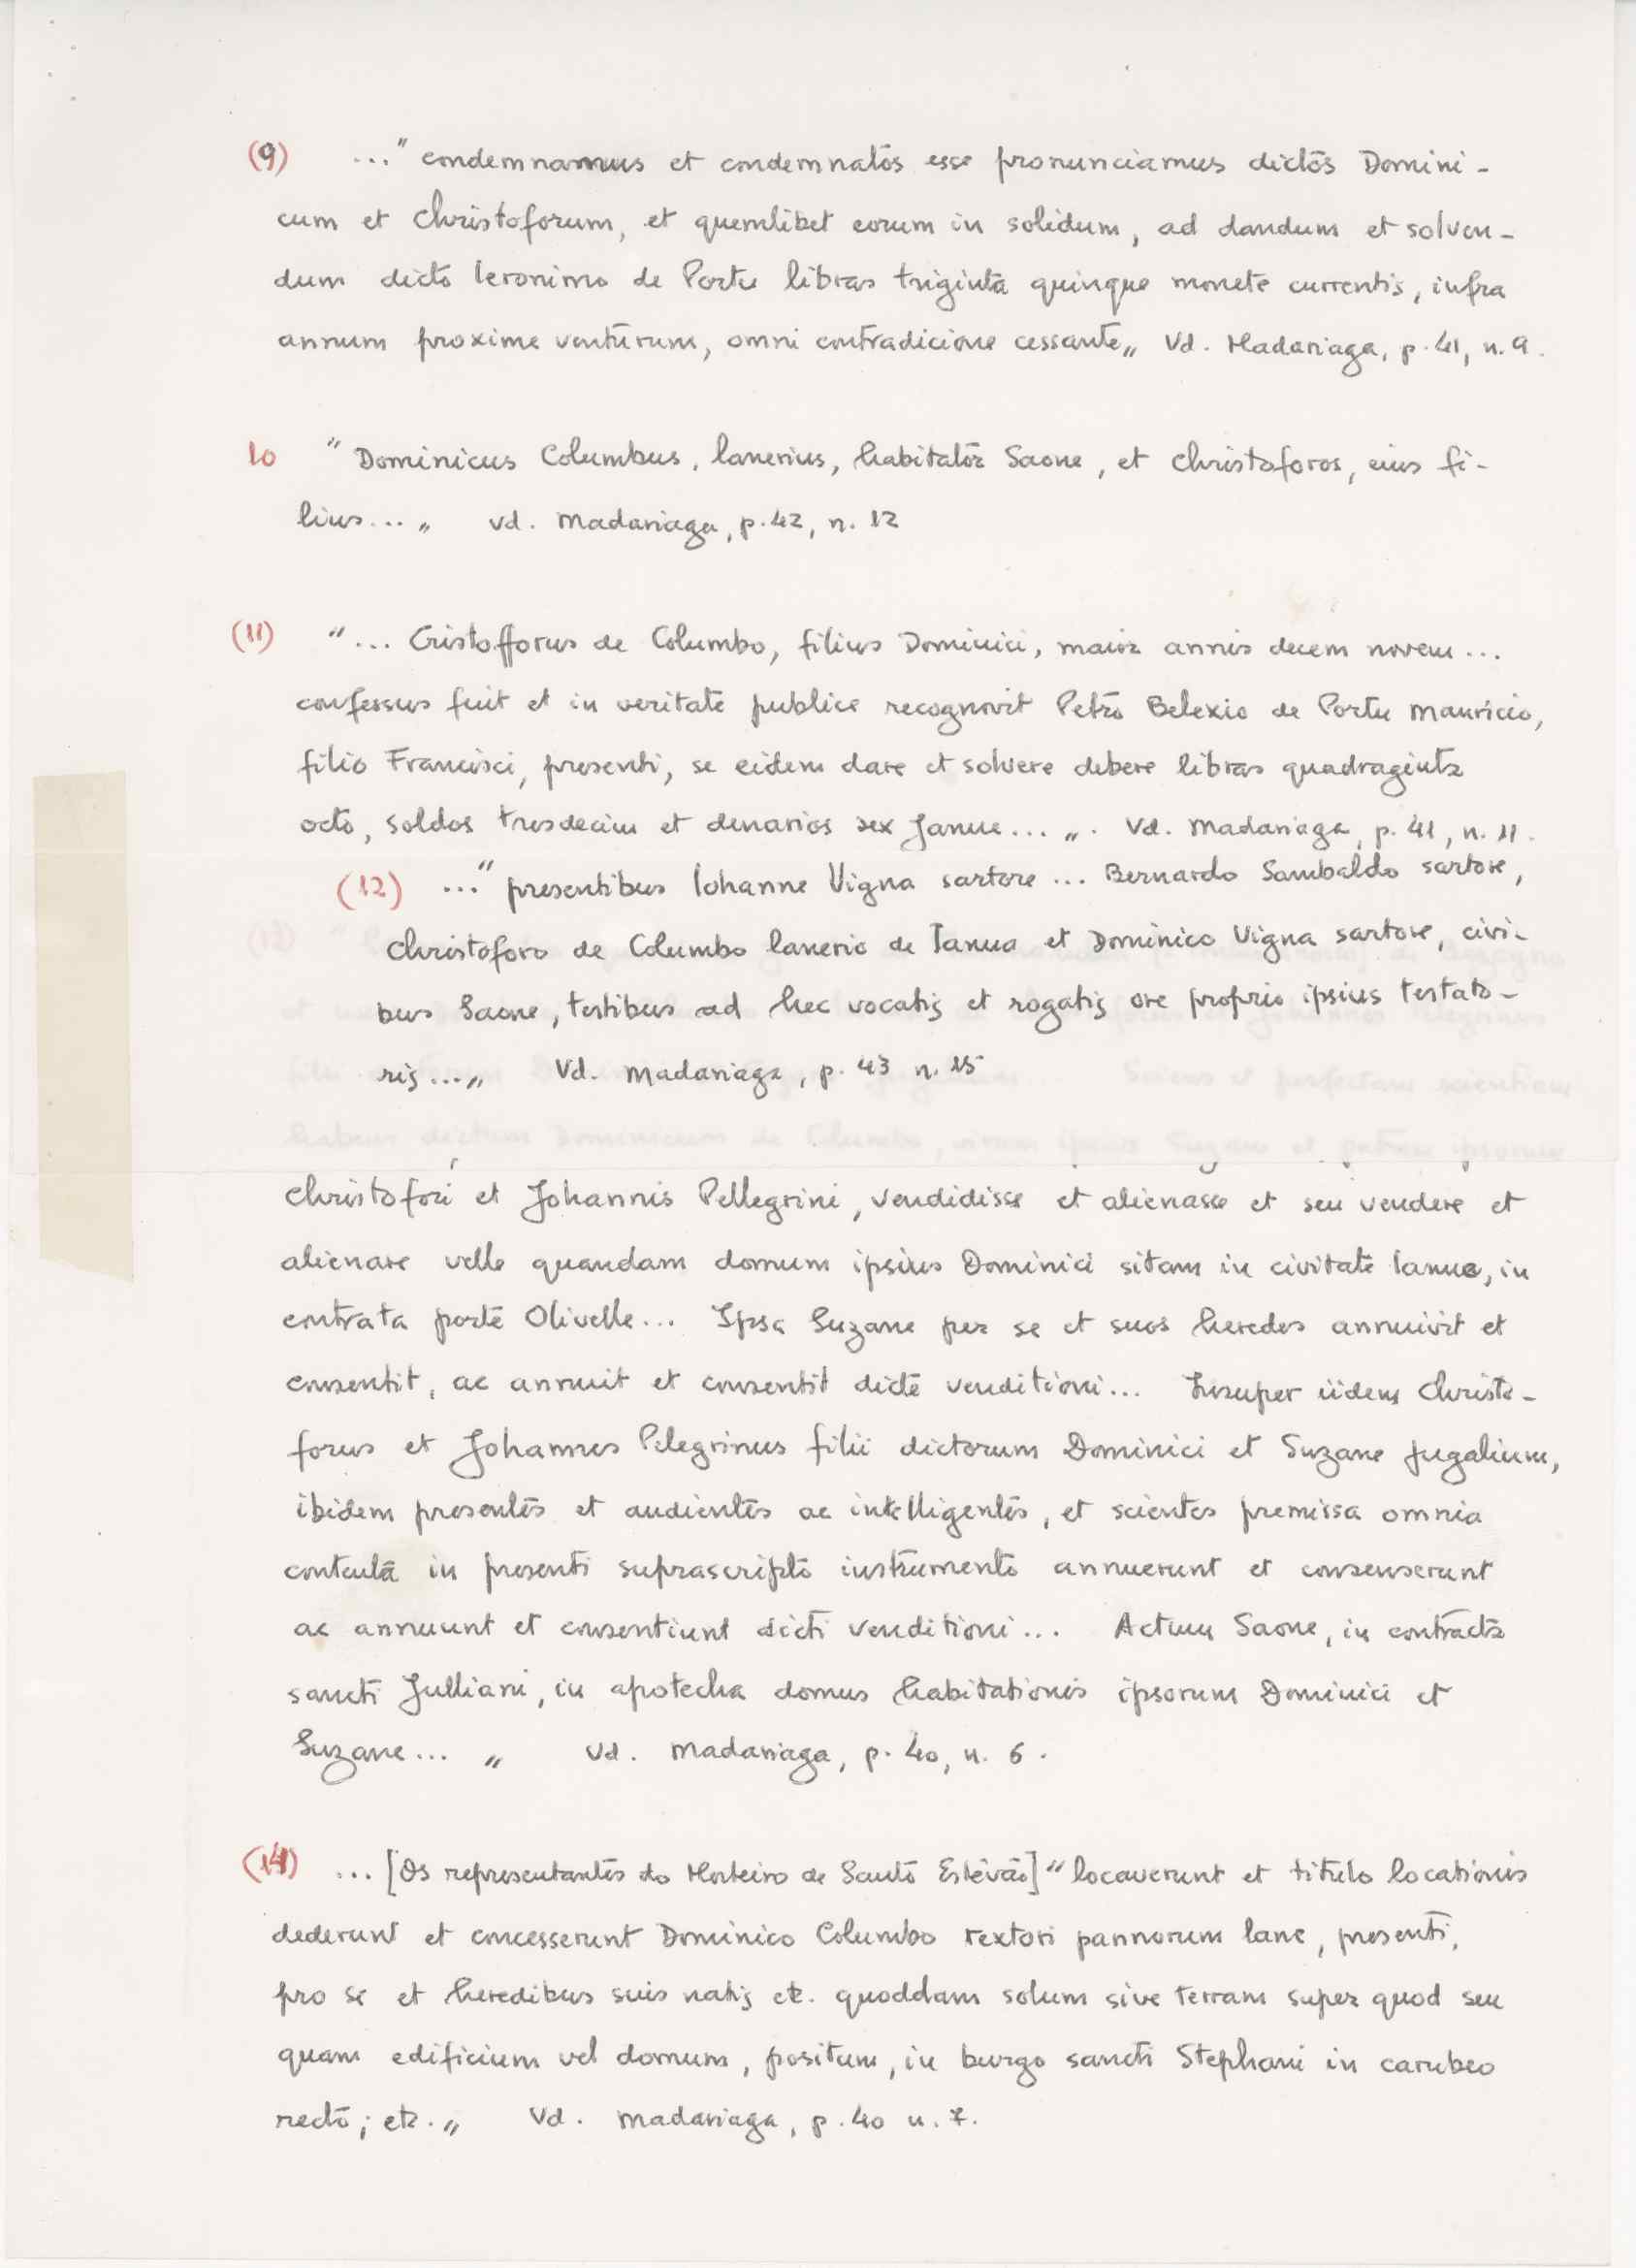 (9) ..." condemnamus et condemnatos esse pronunciamus dictos Domini-
cum et Christoforum, et quemlibet eorum in solidum, ad dandum et solven-
dum dicto Ieronimo de Portu libras triginta quinque monete currentis, infra
annum proxime venturum, omni contradicione cessante„ Vd. Madariaga, p. 41, n. 9.
10 "Dominicus Columbus, lanerius, habitator Saone, et Christoforos, eius fi-
lius...„ Vd. Madariaga, p. 42, n. 12
(11) "... Cristofforus de Columbo, filius Dominici, maior annis decem novem...
confessus fuit et in veritate publice recognovit Petro Belexio de Portu Mauricio,
filio Francisci, presenti, se eidem dare et solvere debere libras quadraginta
octo, soldos tresdecim et denarios sex Janue...„. Vd. Madariaga, p. 41, n. 11.
(12) ..." presentibus Iohanne Vigna sartore... Bernardo Sambaldo sartore,
Christoforo de Columbo lanerio de Ianua et Dominico Vigna sartore, civi-
bus Saone, testibus ad hec vocatis et rogatis ore proprio ipsius testato-
ris...„ Vd. Madariaga, p. 43 n. 15
(13)
Sciens et perfectam scientiam
habens dictum Dominicum de Columbo, virum ipsius Suzane et patrem ipsorum
Christofori et Johannis Pellegrini, vendidisse et alienasse et seu vendere et
alienare velle quandam domum ipsius Dominici sitam in civitate Ianue, in
contrata porte Olivelle... Ipsa Suzane per se et suos heredes annuivit et
consentit, ac annuit et consentit dicte venditioni... Insuper iidem Christo-
forus et Johannes Pelegrinus filii dictorum Dominici et Suzane jugalium,
ibidem presentes et audientes ac intelligentes, et scientes premissa omnia
contenta in presenti suprascripto instrumento annuerunt et consenserunt
ac annuunt et consentiunt dicti venditioni... Actum Saone, in contracta
sancti Julliani, in apotecha domus habitationis ipsorum Dominici et
Suzane...„ Vd. Madariaga, p. 40, n. 6.
(14) ... [Os representantes do Mosteiro de Santo Estêvão] "locaverunt et titulo locationis
dederunt et concesserunt Dominico Columbo textori pannorum lane, presenti,
pro se et heredibus suis natis etc. quoddam solum sive terram super quod seu
quam edificium vel domum, positum, in burgo sancti Stephani in carubeo
recto; etc.„ Vd. Madariaga, p. 40 n. 7.